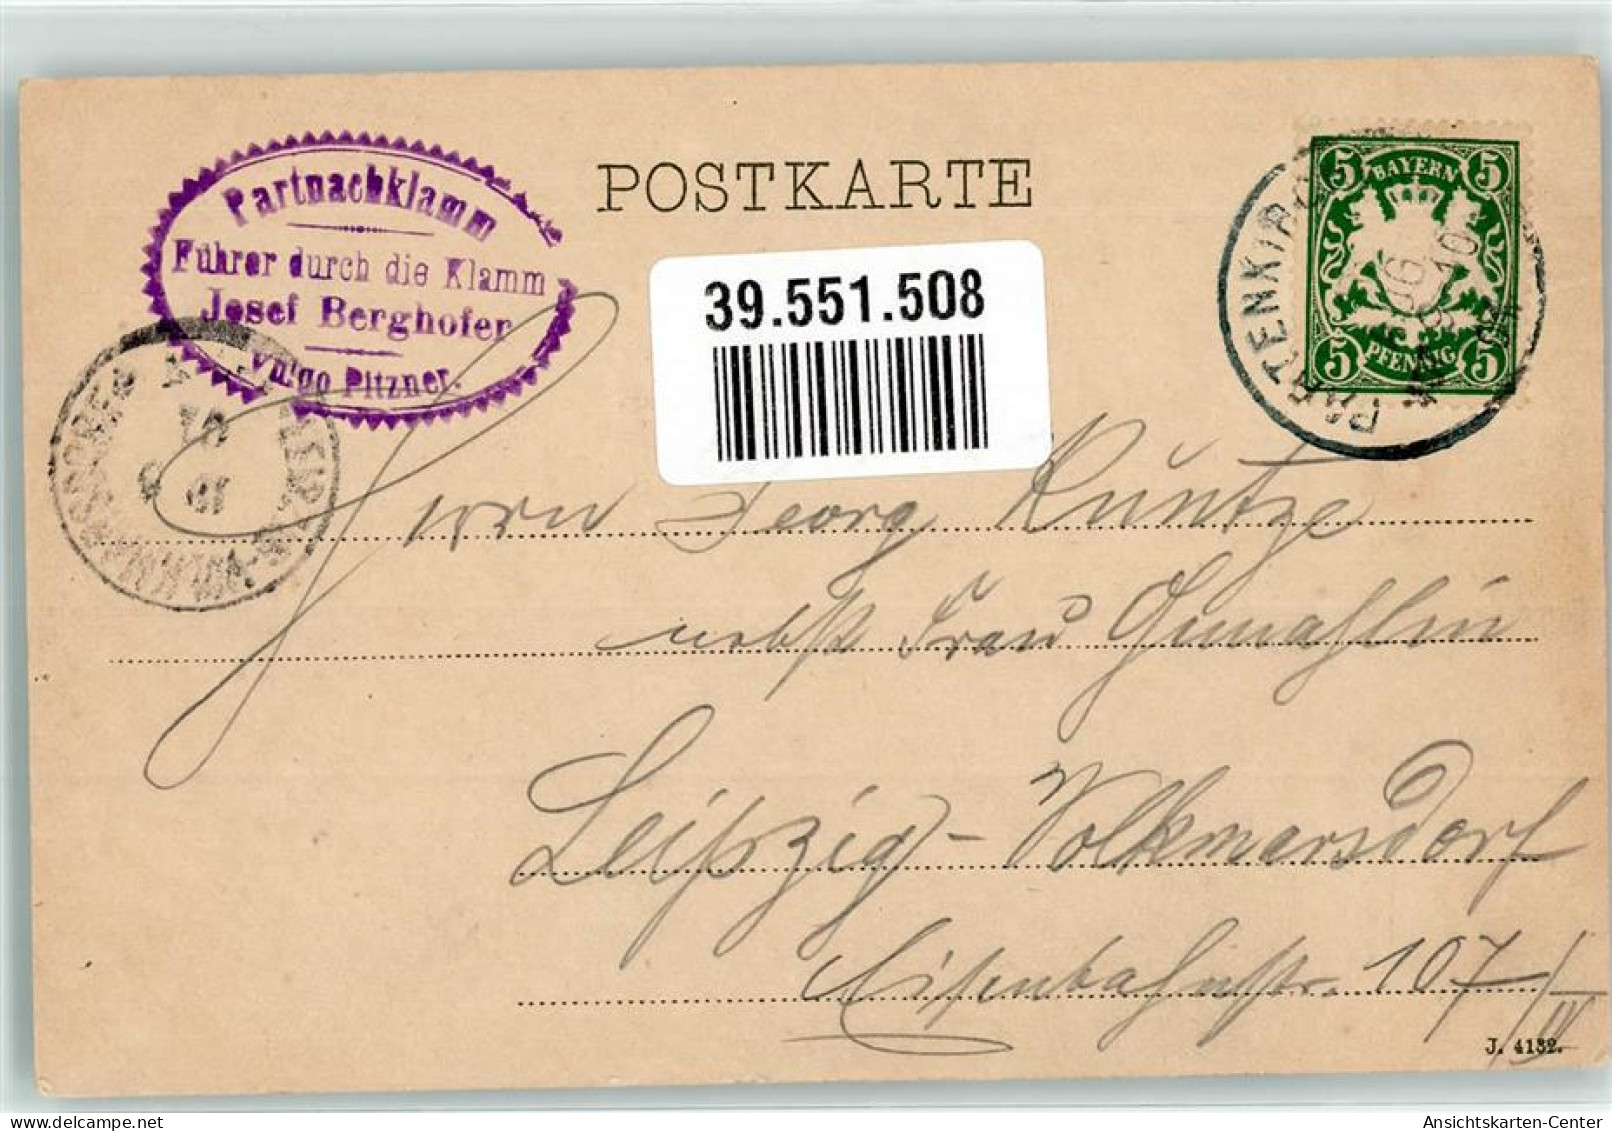 POSTKARTE
Partnachklamm
Führer durch die Klamm
Josef Berghofer
vulgo Pitzner.
39.551.508
PARTENKIRCH
5 BAYERN 5
5 PFENNIG 5
Herrn Georg Kuntze
nebst Frau Gemahlin
Leipzig-Volkmarsdorf
Eisenbahnstr. 107/IV
J. 4132.
Ansichtskarten-Center